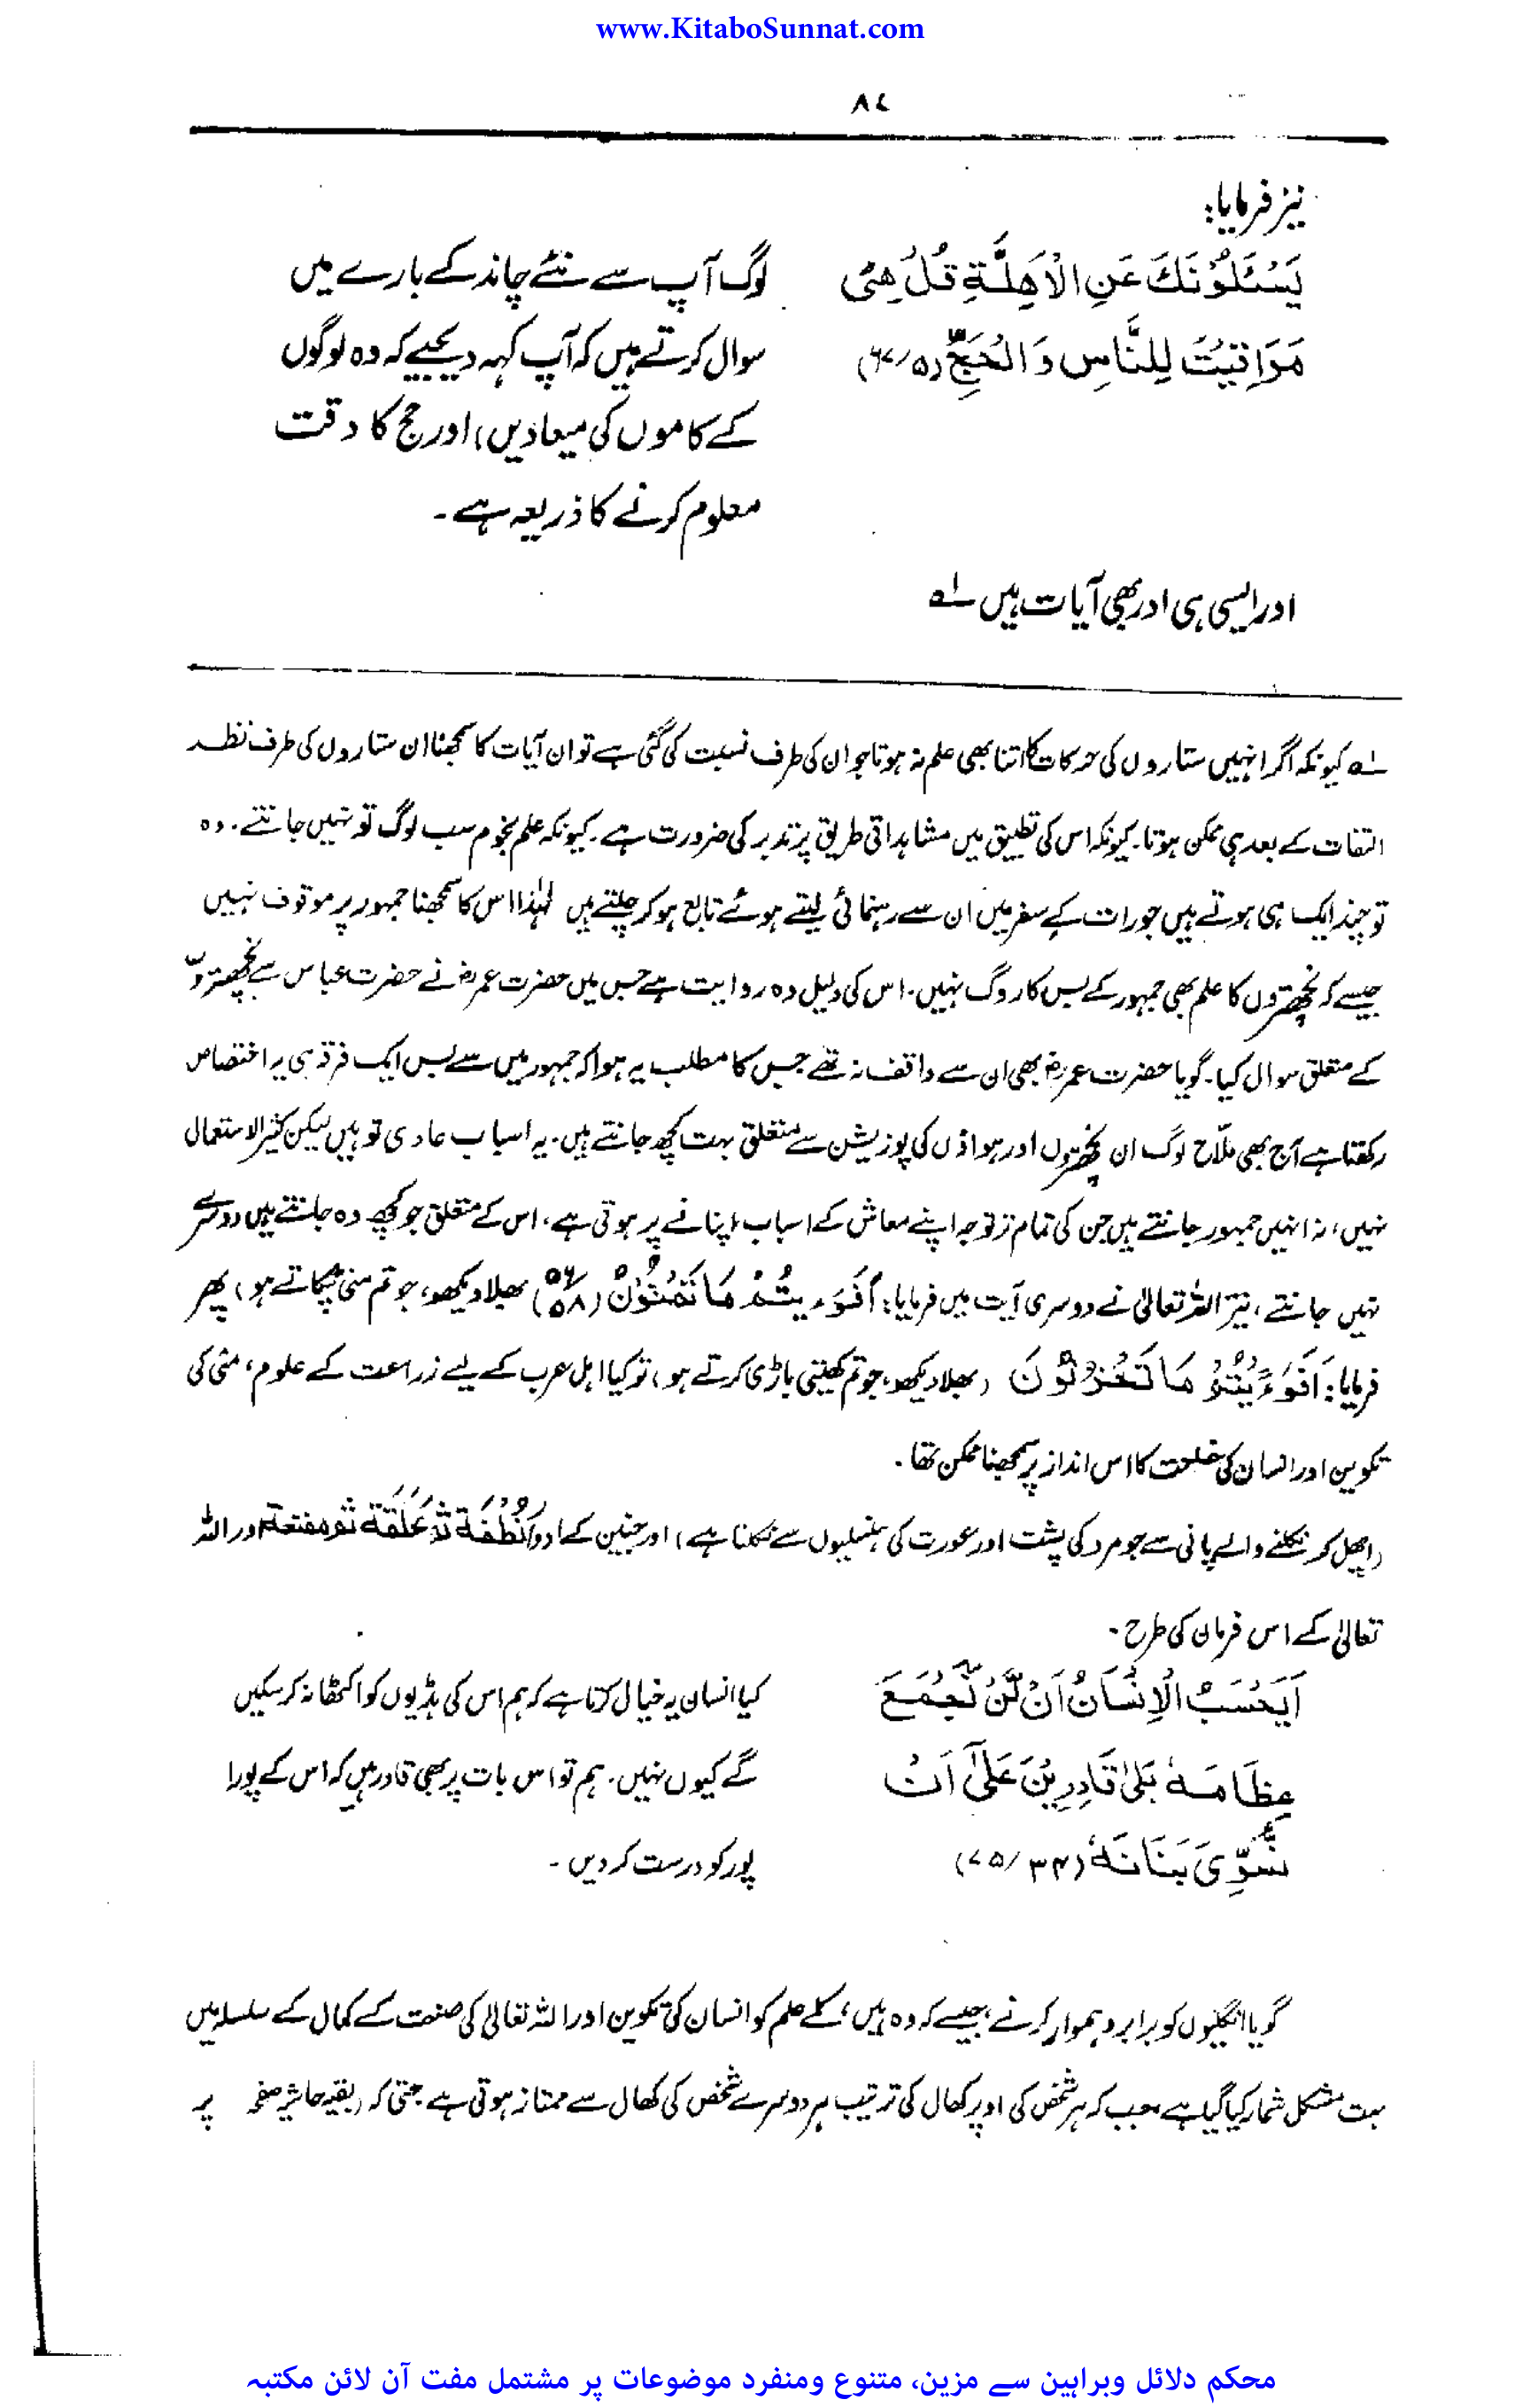 www.KitaboSunnat.com
۸۷
نیز فرمایا:
يَسْئَلُوْنَكَ عَنِ الْاَهِلَّةِ قُلْ هِىَ
مَوَاقِيْتُ لِلنَّاسِ وَالْحَجِّ
لوگ آپ سے نئے چاند کے بارے میں
سوال کرتے ہیں کہ آپ کہہ دیجیے کہ وہ لوگوں
کے کاموں کی میعادیں، اور حج کا وقت
معلوم کرنے کا ذریعہ ہے۔
اور ایسی ہی اور بھی آیات ہیں لہ
لہ کیونکہ اگر انہیں ستاروں کی حرکات کا اتنا بھی علم نہ ہوتا جو ان کی طرف نسبت کی گئی ہے تو ان آیات کا سمجھنا ان ستاروں کی طرف نظر
التفات کے بعد ہی ممکن ہوتا۔ کیونکہ اس کی تطبیق میں مشاہداتی طریق پر تدبر کی ضرورت ہے۔ کیونکہ علم نجوم سب لوگ تو نہیں جانتے۔ وہ
تو چند ایک ہی ہوتے ہیں جو رات کے سفر میں ان سے رہنمائی لیتے ہوئے تابع ہو کر چلتے ہیں لہٰذا اس کا سمجھنا جمہور پر موقوف نہیں
جیسے کہ نچھتروں کا علم بھی جمہور کے بس کا روگ نہیں۔ اس کی دلیل وہ روایت ہے جس میں حضرت عمرؓ نے حضرت عباس سے نچھتروں
کے متعلق سوال کیا۔ گویا حضرت عمرؓ بھی ان سے واقف نہ تھے جس کا مطلب یہ ہوا کہ جمہور میں سے بس ایک فرقہ ہی یہ اختصاص
رکھتا ہے آج بھی ملّاح لوگ ان نچھتروں اور ہواؤں کی پوزیشن سے متعلق بہت کچھ جانتے ہیں۔ یہ اسباب عادی تو ہیں لیکن کثیر الاستعمال
نہیں، نہ انہیں جمہور جانتے ہیں جن کی تمام تر توجہ اپنے معاش کے اسباب اپنانے پر ہوتی ہے، اس کے متعلق جو کچھ وہ جانتے ہیں دوسرے
نہیں جانتے، نیز اللہ تعالیٰ نے دوسری آیت میں فرمایا: اَفَرَءَيْتُمْ مَا تُمْنُوْنَ (۵۶/۵۸) بھلا دیکھو، جو تم منی ٹپکاتے ہو) پھر
فرمایا: اَفَرَءَيْتُمْ مَا تَحْرُثُوْنَ (بھلا دیکھو، جو تم کھیتی باڑی کرتے ہو) تو کیا اہل عرب کے لیے زراعت کے علوم، منی کی
تکوین اور انسان کی خلقت کا اس انداز پر سمجھنا ممکن تھا۔
(اچھل کر نکلنے والے پانی سے جو مرد کی پشت اور عورت کی ہنسلیوں سے نکلتا ہے) اور جنین کے ادوار نُطْفَة ثم عَلَقَة ثم مضغة اور اللہ
تعالیٰ کے اس فرمان کی طرح۔
اَيَحْسَبُ الْاِنْسَانُ اَنْ لَّنْ نَّجْمَعَ
عِظَامَهٗ بَلٰى قَادِرِيْنَ عَلٰٓى اَنْ
نُّسَوِّىَ بَنَانَهٗ (۷۵/۳۴)
کیا انسان یہ خیال کرتا ہے کہ ہم اس کی ہڈیوں کو اکٹھا نہ کر سکیں
گے کیوں نہیں۔ ہم تو اس بات پر بھی قادر ہیں کہ اس کے پورا
پور کو درست کر دیں۔
گویا انگلیوں کو برابر و ہموار کرنے، جیسے کہ وہ ہیں، کے علم کو انسان کی تکوین اور اللہ تعالیٰ کی صنعت کے کمال کے سلسلہ میں
بہت مشکل شمار کیا گیا ہے جب کہ ہر شخص کی اوپر کھال کی ترتیب ہر دوسرے شخص کی کھال سے ممتاز ہوتی ہے حتیٰ کہ (بقیہ حاشیہ صفحہ پر
محکم دلائل وبراہین سے مزین، متنوع ومنفرد موضوعات پر مشتمل مفت آن لائن مکتبہ